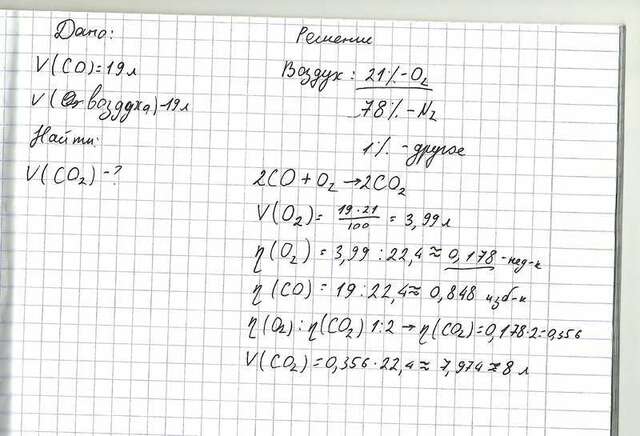 Дано:
V(CO)=19л
V(воздуха)-19л
Найти:
V(CO₂)-?
Решение
Воздух: 21%-O₂
78%-N₂
1%-другое
2CO+O₂→2CO₂
V(O₂)= 19·21/100 = 3,99л
η(O₂)=3,99:22,4≈0,178-нед-к
η(CO)=19:22,4≈0,848 изб-к
η(O₂):η(CO₂) 1:2→η(CO₂)=0,178·2=0,356
V(CO₂)=0,356·22,4≈7,974≈8 л